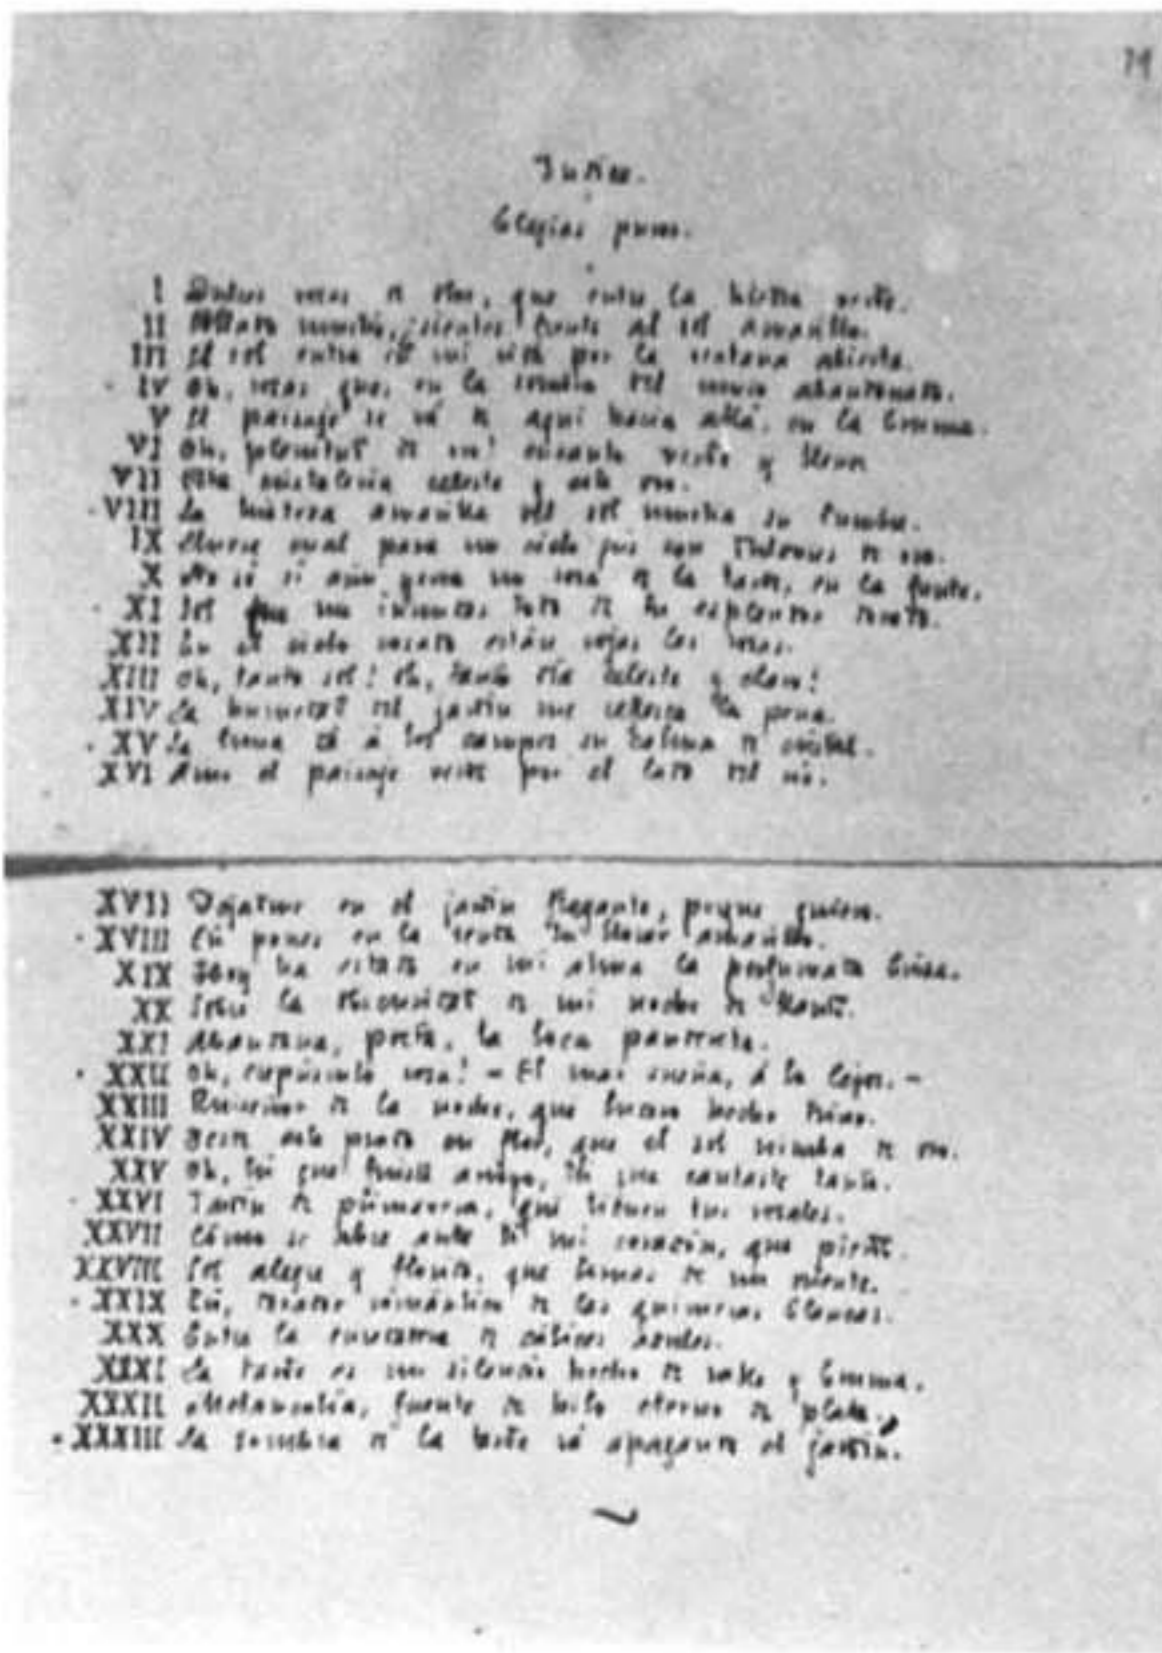 19
Indice.
Elegías puras.
I Dulces rosas de olor, que entre la hiedra verde.
II marchito, sientes frente al sol amarillo.
III El sol entra en mi vida por la ventana abierta.
IV Oh, rosas que, en la sombra del muro abandonado.
V El paisaje se vá de aquí hacia allá, en la bruma.
VI Oh, plenitud de oro! encanto verde y lleno
VII Esta celeste y este oro.
VIII La tristeza amarilla del sol mustia su lumbre.
IX cual para un cielo de oro.
X No sé si aún una rosa de la tarde, en la fuente.
XI Sol que me todo de tu esplendor dorado.
XII En el cielo rosado están rojas las rosas.
XIII Oh, tanto sol! Oh, tanto día celeste y claro!
XIV La humedad del jardín me refresca la pena.
XV La luna dá á los campos su calma de cristal.
XVI Amo el paisaje verde por el lado del río.
XVII Dejadme en el jardín fragante, porque quiero.
XVIII Tú pones en la senda tu llorar amarillo.
XIX Hoy ha estado en mi alma la perfumada brisa.
XX Sobre la obscuridad de mi noche de llanto.
XXI Abandona, poeta, la loca pandereta.
XXII Oh, crepúsculo rosa! – El mar sueña, á lo lejos. –
XXIII Ruiseñor de la noche, que hecho trino.
XXIV Desde este prado en flor, que el sol nimba de oro.
XXV Oh, tú que fuiste amigo, tú que cantaste tanto.
XXVI Jardín de primavera, qué tienen tus rosales.
XXVII Cómo se abre ante tí mi corazón, que pierde.
XXVIII Sol alegre y florido, que tornas de un oriente.
XXIX Tú, creador romántico de las quimeras blancas.
XXX Entre la enredadera de cálices azules.
XXXI La tarde es un silencio hecho de valle y bruma.
XXXII Melancolía, fuente de hilo eterno de plata.
XXXIII La sombra de la tarde vá apagando el jardín.